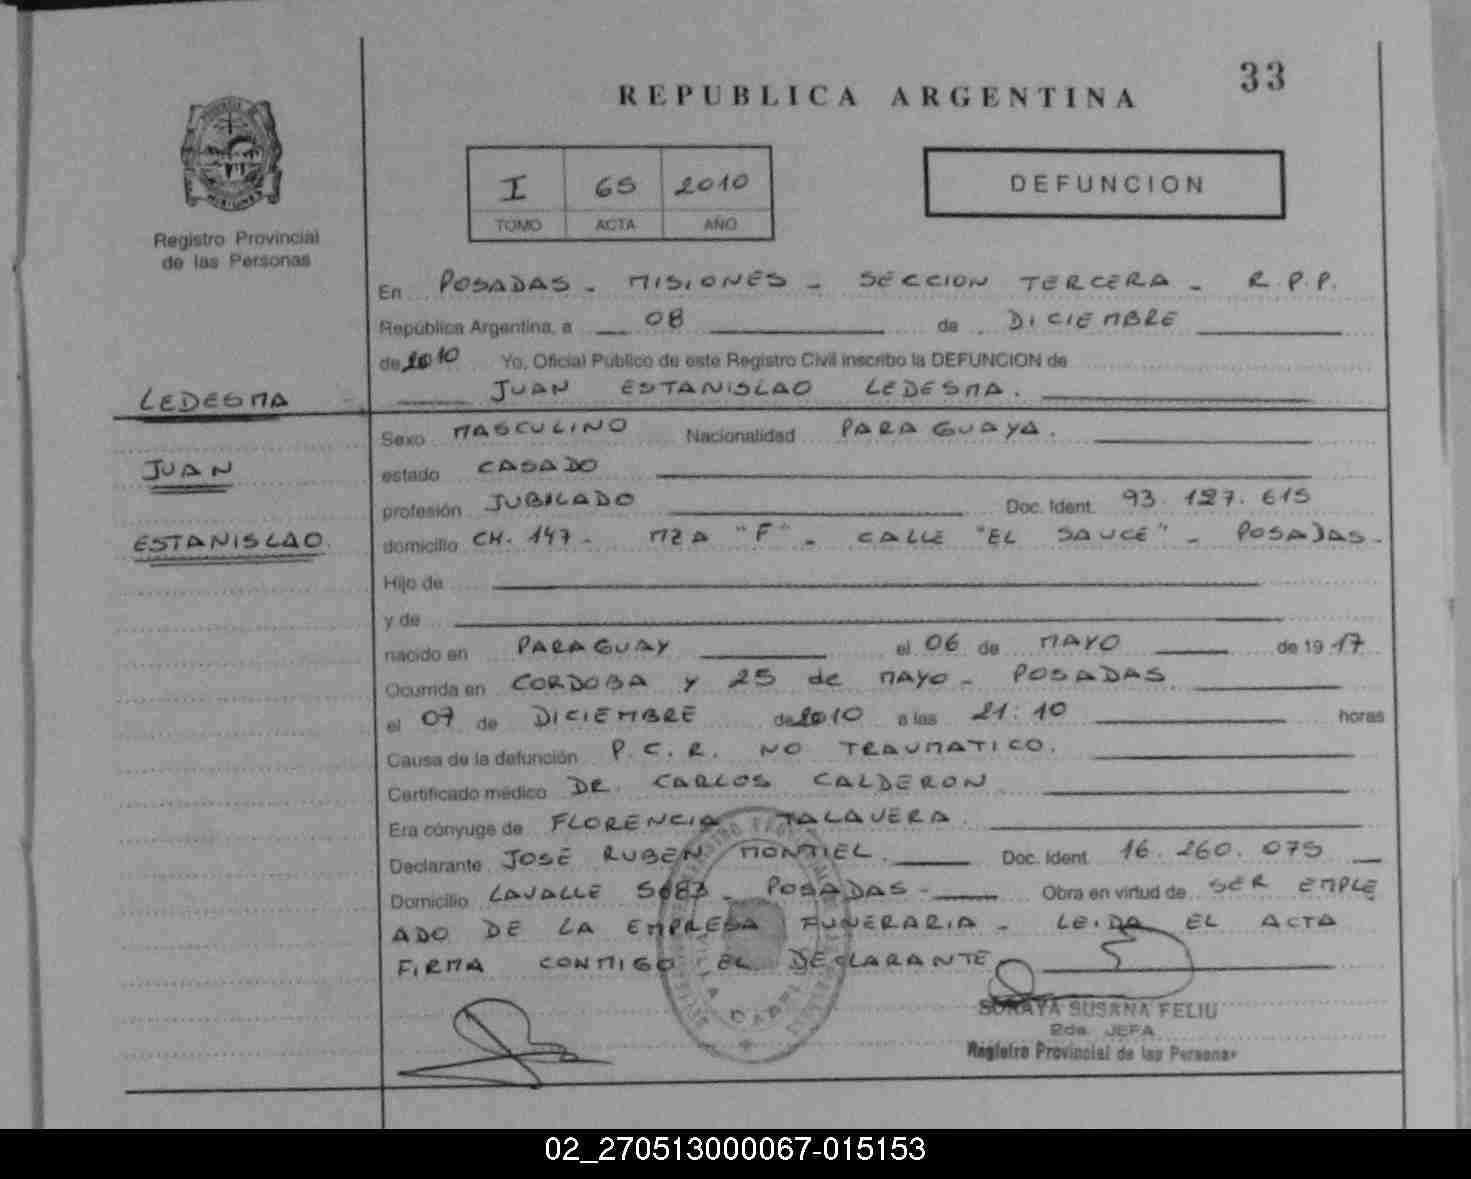 33
REPUBLICA ARGENTINA
I 65 2010
TOMO ACTA AÑO
DEFUNCION
Registro Provincial
de las Personas
En POSADAS - MISIONES - SECCION TERCERA - R.P.P.
República Argentina, a 08 de DICIEMBRE
de 2010 Yo, Oficial Público de este Registro Civil inscribo la DEFUNCION de
JUAN ESTANISLAO LEDESMA.
LEDESMA
JUAN
ESTANISLAO
Sexo MASCULINO Nacionalidad PARAGUAYA.
estado CASADO
profesión JUBILADO Doc. Ident. 93.127.615
domicilio CH. 147 - MZA "F" - CALLE "EL SAUCE" - POSADAS -
Hijo de
y de
nacido en PARAGUAY el 06 de MAYO de 19 17
Ocurrida en CORDOBA y 25 de MAYO - POSADAS
el 07 de DICIEMBRE de 2010 a las 21:10 horas
Causa de la defunción P.C.R. NO TRAUMATICO.
Certificado médico DR. CARLOS CALDERON
Era cónyuge de FLORENCIA TALAVERA.
Declarante JOSÉ RUBEN MONTIEL. Doc. Ident. 16.260.075
Domicilio LAVALLE 5683 - POSADAS - Obra en virtud de SER EMPLE
ADO DE LA EMPRESA FUNERARIA - LEIDA EL ACTA
FIRMA CONMIGO EL DECLARANTE
SORAYA SUSANA FELIU
2da. JEFA
Registro Provincial de las Personas
02_270513000067-015153